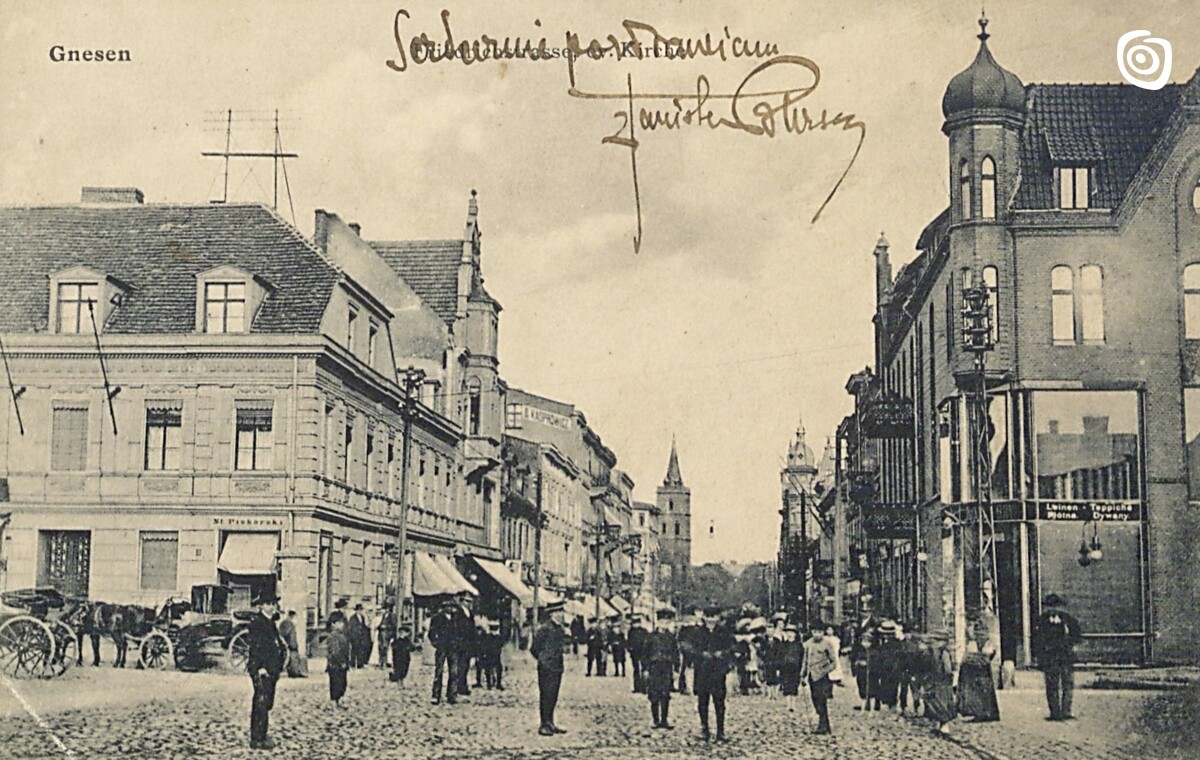 Gnesen
Friedrichstrasse, ev. Kirche
Serdeczne pozdrowienia
B. KASPROWICZ
St Piskorski
Leinen - Teppiche
Płótna. Dywany.